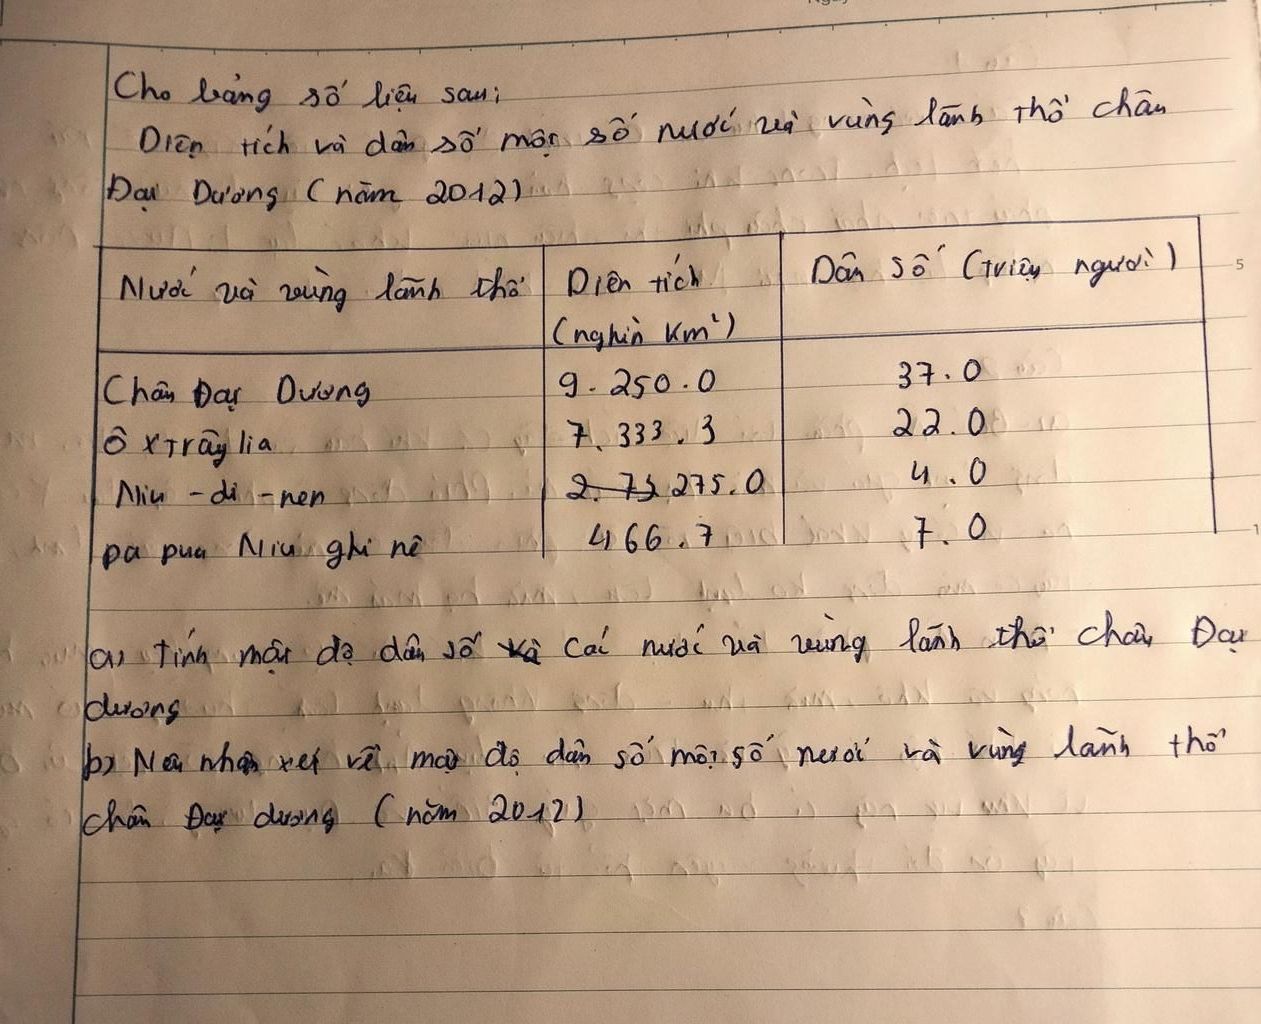 Cho bảng số liệu sau;
Diện tích và dân số một số nước và vùng lãnh thổ châu
Đại Dương (năm 2012)
Nước và vùng lãnh thổ
Diện tích
(nghìn Km²)
Dân số (triệu người)
Châu Đại Dương 9.250.0 37.0
Ôxtrâylia 7.333.3 22.0
Niu-di-nen 275.0 4.0
pa pua Niu ghi nê 466.7 7.0
a) Tính mật độ dân số các nước và vùng lãnh thổ châu Đại
dương
b) Nêu nhận xét về mật độ dân số một số nước và vùng lãnh thổ
châu Đại dương (năm 2012)